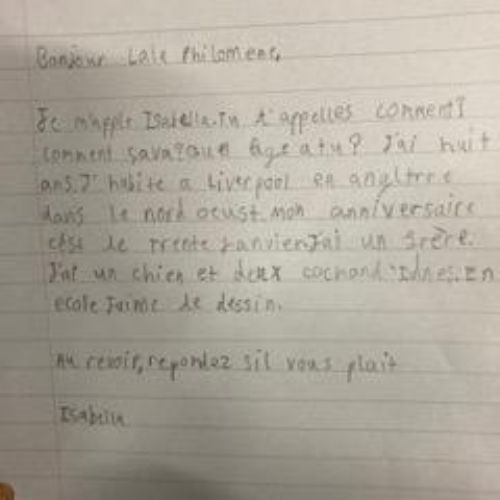 Bonjour Lale Philomene,
Je m'apple Isabella. Tu t'appelles comment?
comment sava? quel âge atu? J'ai huit
ans. J'habite a Liverpool en angltree
dans le nord oeust. Mon anniversaire
c'est le trente Janvier. J'ai un frère.
J'ai un chien et deux cochond'Idnes. En
ecole J'aime de dessin.
Au revoir, repondez sil vous plait
Isabella